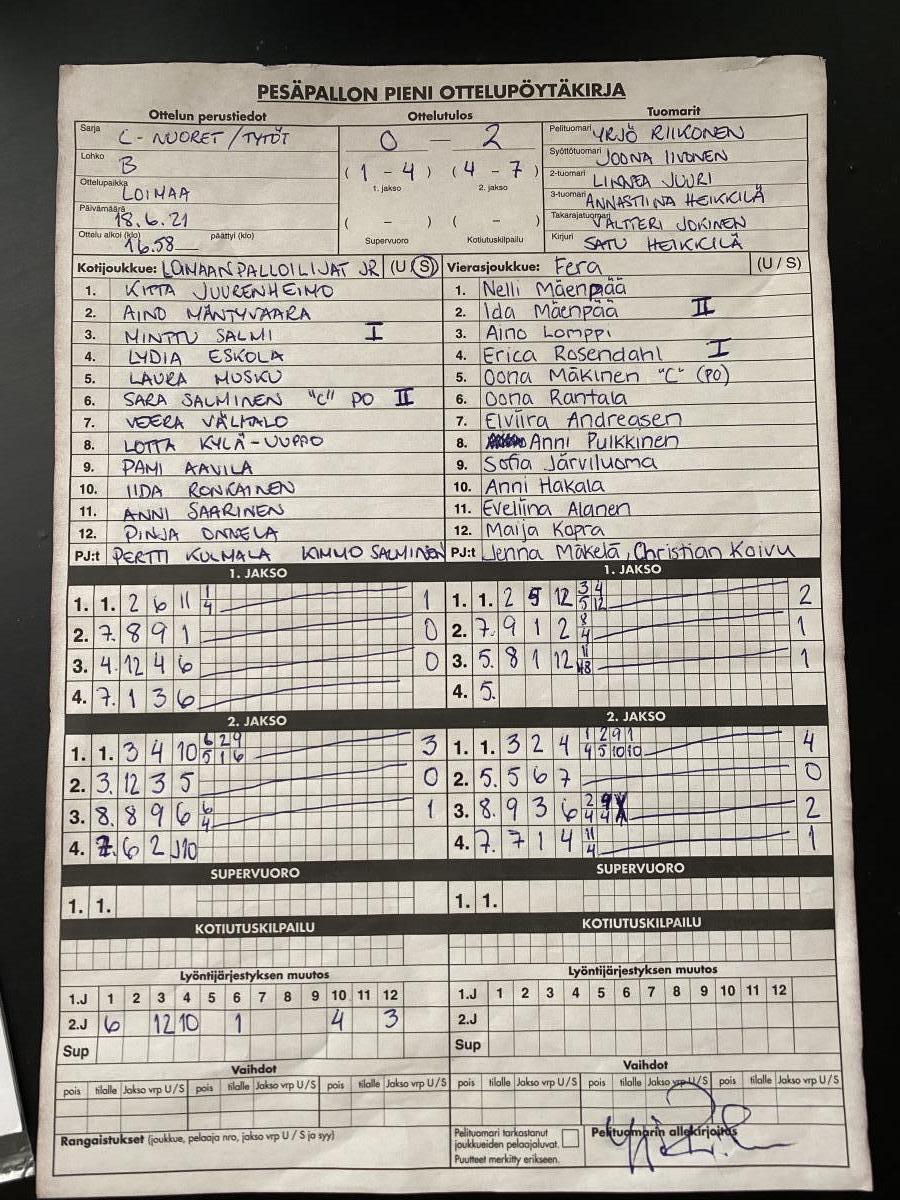 PESÄPALLON PIENI OTTELUPÖYTÄKIRJA
Ottelun perustiedot Ottelutulos Tuomarit
Sarja C-NUORET/TYTÖT 0 — 2 Pelituomari YRJÖ RIIKONEN
Lohko B (1 - 4) (4 - 7) Syöttötuomari JOONA IIVONEN
1. jakso 2. jakso 2-tuomari LINNEA JUURI
Ottelupaikka LOIMAA 3-tuomari ANNASTIINA HEIKKILÄ
Päivämäärä 18.6.21 ( - ) ( - ) Takarajatuomari VALTTERI JOKINEN
Ottelu alkoi (klo) 16.58 päättyi (klo) Supervuoro Kotiutuskilpailu Kirjuri SATU HEIKKILÄ
Kotijoukkue: LOIMAAN PALLOILIJAT JR (U/S) Vierasjoukkue: Fera (U / S)
1. KITTA JUURENHEIMO 1. Nelli Mäenpää
2. AINO MÄNTYVAARA 2. Ida Mäenpää II
3. MINTTU SALMI I 3. Aino Lomppi
4. LYDIA ESKOLA 4. Erica Rosendahl I
5. LAURA MUSKU 5. Oona Mäkinen "C" (PO)
6. SARA SALMINEN "C" PO II 6. Oona Rantala
7. VEERA VÄLITALO 7. Elviira Andreasen
8. LOTTA KYLÄ-UUPPO 8. Anni Pulkkinen
9. PAMI AAVILA 9. Sofia Järviluoma
10. IIDA RONKAINEN 10. Anni Hakala
11. ANNI SAARINEN 11. Eveliina Alanen
12. PINJA ONNELA 12. Maija Kopra
PJ:t PERTTI KULMALA KIMMO SALMINEN PJ:t Jenna Mäkelä, Christian Koivu
1. JAKSO 1. JAKSO
1. 1. 2 6 11 1/4 1 1. 1. 2 5 12 3/5 4/12 2
2. 7. 8 9 1 0 2. 7. 9 1 2 8/4 1
3. 4. 12 4 6 0 3. 5. 8 1 12 1
4. 7. 1 3 6 4. 5.
2. JAKSO 2. JAKSO
1. 1. 3 4 10 6/5 2/1 9/6 3 1. 1. 3 2 4 1/4 2/5 9/10 1/10 4
2. 3. 12 3 5 0 2. 5. 5 6 7 0
3. 8. 8 9 6 6/4 1 3. 8. 9 3 6 2/4 9/4 2
4. 7. 6 2 10 4. 7. 7 1 4 11/4 1
SUPERVUORO SUPERVUORO
1. 1. 1. 1.
KOTIUTUSKILPAILU KOTIUTUSKILPAILU
Lyöntijärjestyksen muutos Lyöntijärjestyksen muutos
1.J 1 2 3 4 5 6 7 8 9 10 11 12 1.J 1 2 3 4 5 6 7 8 9 10 11 12
2.J 6 12 10 1 4 3 2.J
Sup Sup
Vaihdot Vaihdot
pois tilalle Jakso vrp U/S pois tilalle Jakso vrp U/S pois tilalle Jakso vrp U/S pois tilalle Jakso vrp U/S pois tilalle Jakso vrp U/S pois tilalle Jakso vrp U/S
Rangaistukset (joukkue, pelaaja nro, jakso vrp U / S ja syy) Pelituomari tarkastanut joukkueiden pelaajaluvat. Pelituomarin allekirjoitus
Puutteet merkitty erikseen.